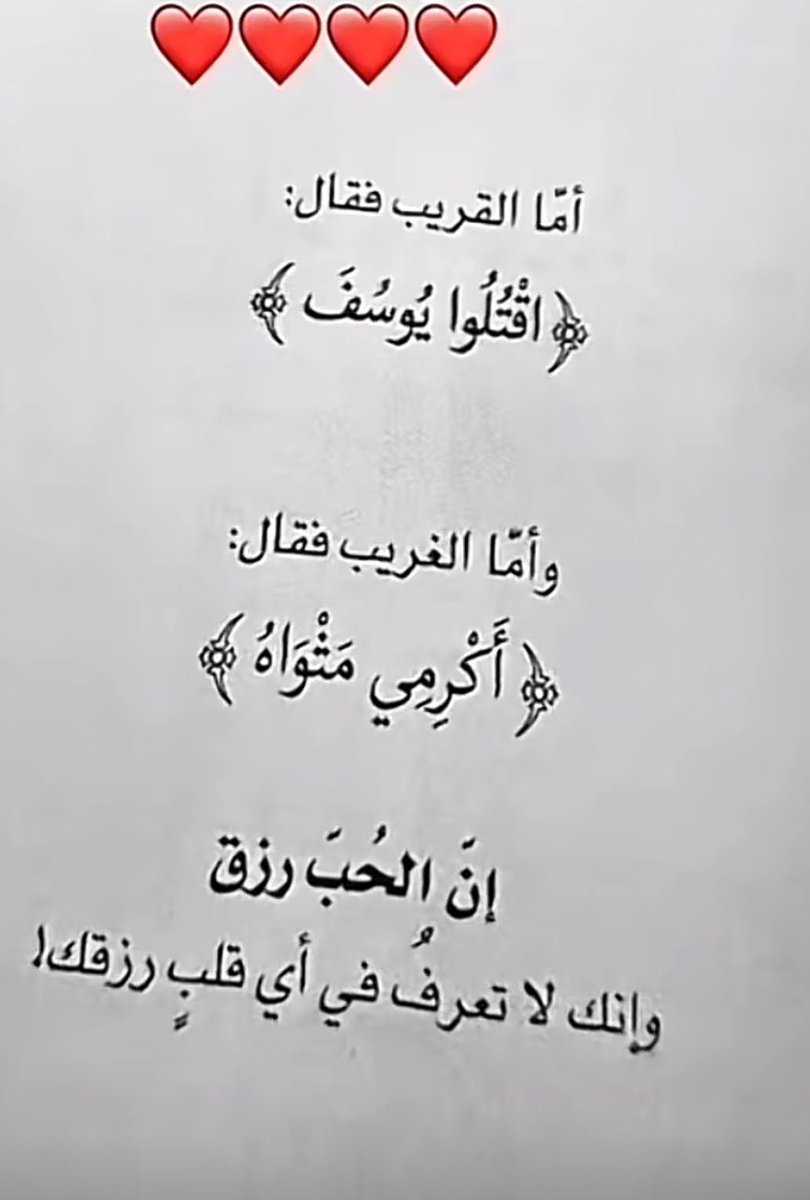 أمّا القريب فقال:
﴿اقْتُلُوا يُوسُفَ﴾
وأمّا الغريب فقال:
﴿أَكْرِمِي مَثْوَاهُ﴾
إنَّ الحُبَ رزق
وإنك لا تعرفُ في أي قلبٍ رزقك!